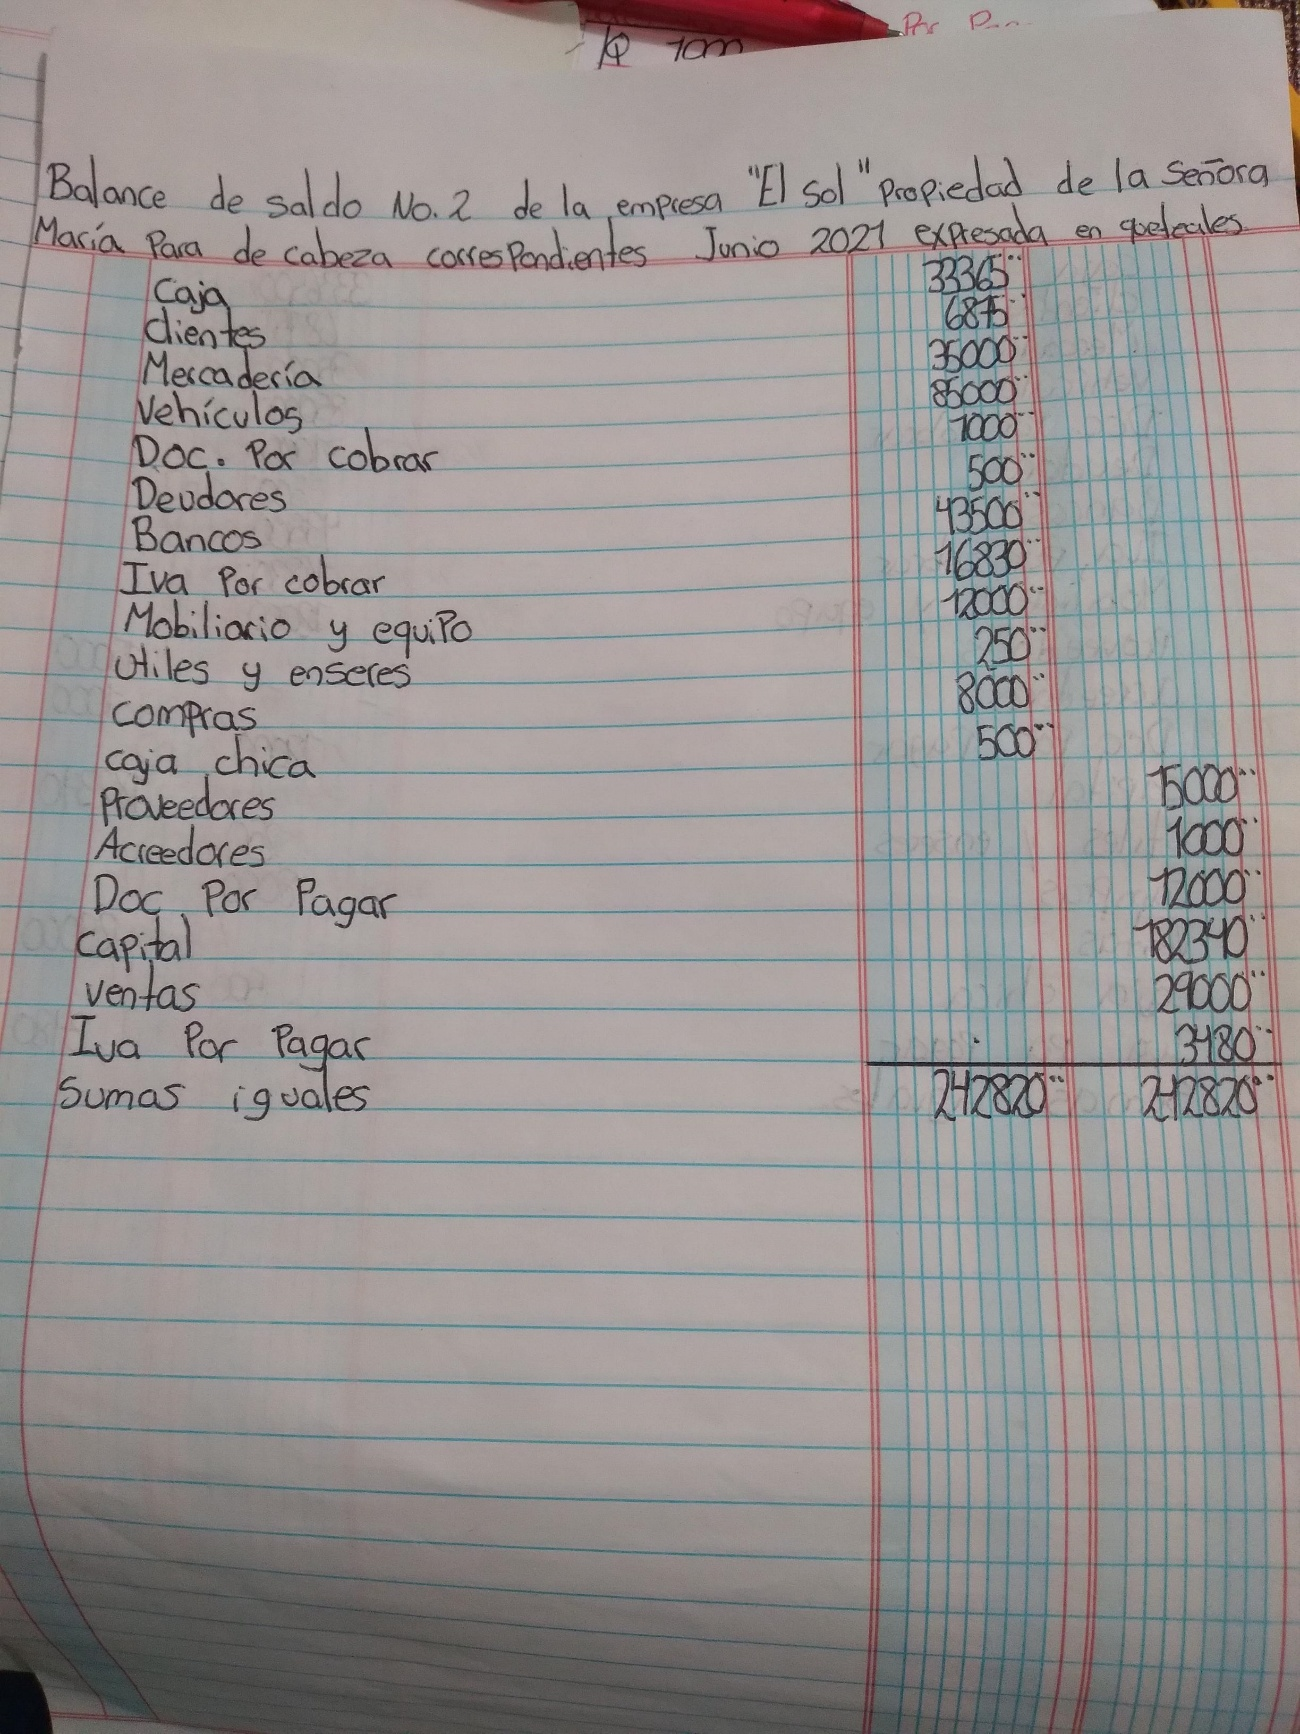 Por
Balance de saldo No. 2 de la empresa "El sol" Propiedad de la señora
María Para de cabeza correspondientes Junio 2021 expresada en quetzales
Caja 33365
clientes 6875
Mercadería 35000
Vehículos 85000
Doc. Por cobrar 1000
Deudores 500
Bancos 43500
Iva Por cobrar 16830
Mobiliario y equipo 12000
Utiles y enseres 250
compras 8000
caja chica 500
Proveedores 15000
Acreedores 1000
Doc. Por Pagar 12000
capital 182340
ventas 29000
Iva Por Pagar 3480
Sumas iguales 242820 242820